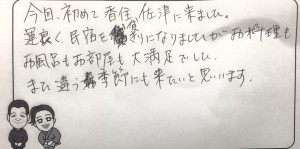 今回、初めて香住、佐津に来ました。
運良く民宿を借りになりましたがお料理も
お風呂もお部屋も大満足でした。
また違う季節にも来たいと思います。